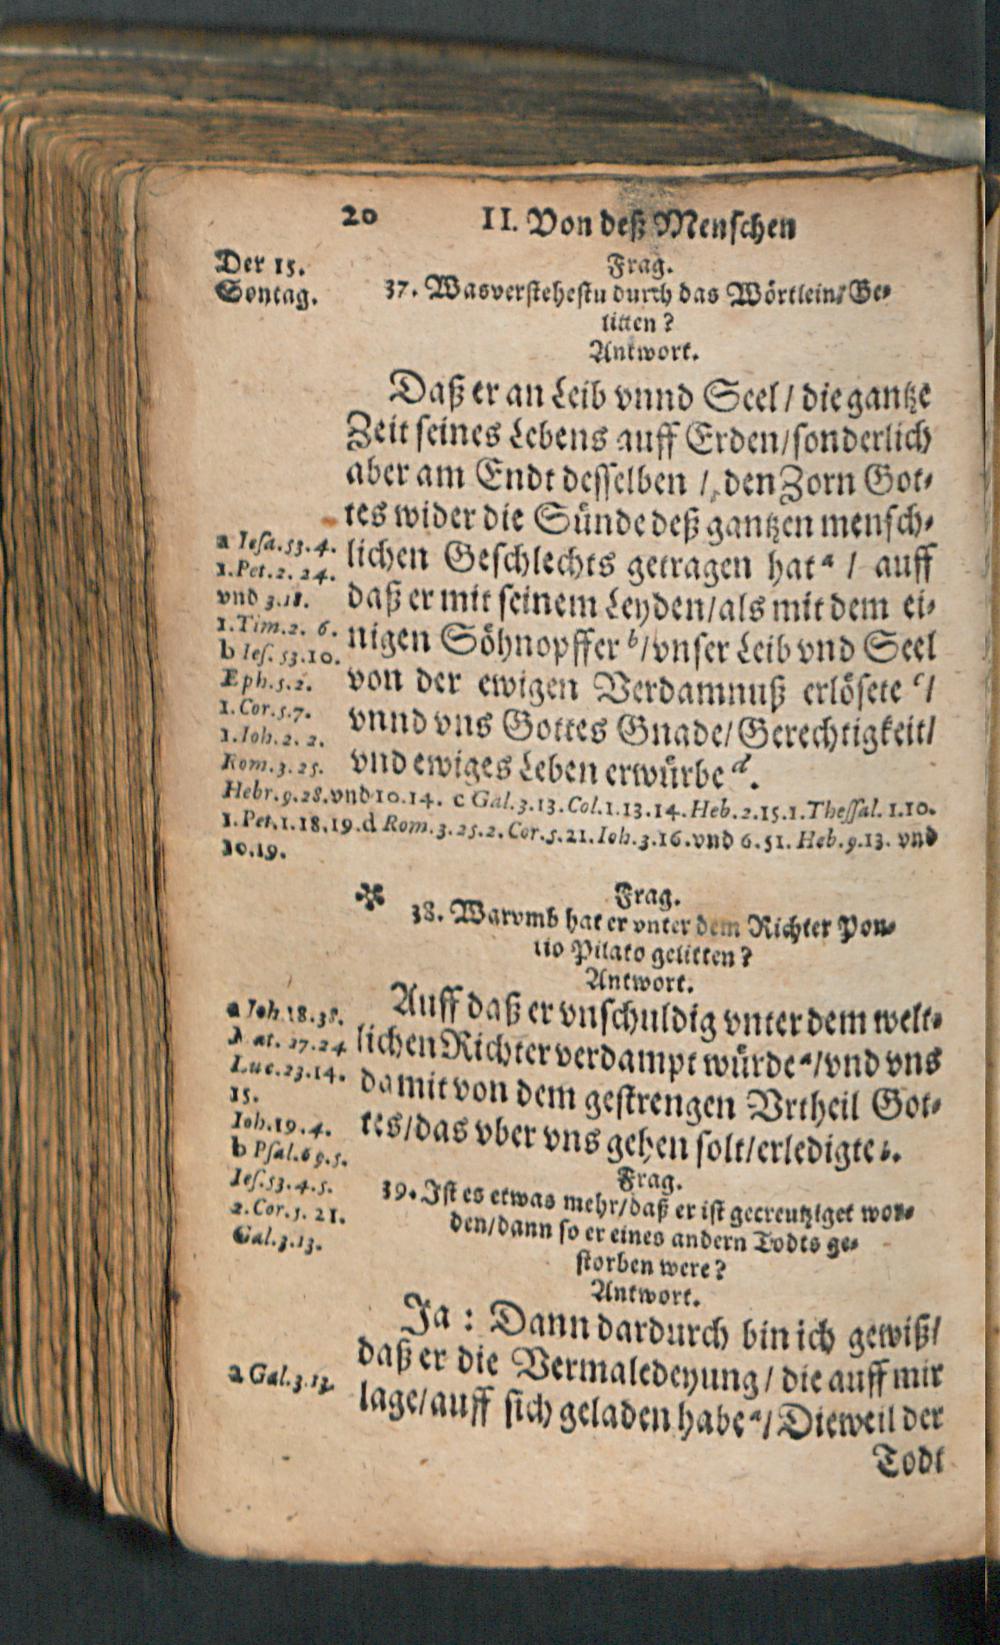 20 II. Von deß Menschen
Der 15.
Sontag.
Frag.
37. Was verstehestu durch das Wörtlein/ Ge-
litten?
Antwort.
Daß er an Leib vnnd Seel / die gantze
Zeit seines Lebens auff Erden/sonderlich
aber am Endt desselben / den Zorn Got-
tes wider die Sünde deß gantzen mensch-
lichen Geschlechts getragen hat a / auff
daß er mit seinem Leyden/als mit dem ei-
nigen Söhnopffer b/vnser Leib vnd Seel
von der ewigen Verdamnuß erlösete c/
vnnd vns Gottes Gnade/Gerechtigkeit/
vnd ewiges Leben erwürbe d.
a Iesa.53.4.
1.Pet.2.24.
vnd 3.18.
1.Tim.2.6.
b Ies.53.10.
Eph.5.2.
1.Cor.5.7.
1.Ioh.2.2.
Rom.3.25.
Hebr.9.28.vnd 10.14. c Gal.3.13.Col.1.13.14.Heb.2.15.1.Thessal.1.10.
1.Pet.1.18.19.d Rom.3.25.2.Cor.5.21.Ioh.3.16.vnd 6.51. Heb.9.13. vnd
10.19.
Frag.
38. Warvmb hat er vnter dem Richter Pon-
tio Pilato gelitten?
Antwort.
Auff daß er vnschuldig vnter dem welt-
lichen Richter verdampt würde a/vnd vns
damit von dem gestrengen Vrtheil Got-
tes/das vber vns gehen solt/erledigte b.
a Joh.18.38.
Mat.27.24
Luc.23.14.
15.
Ioh.19.4.
b Psal.69.5.
Ies.53.4.5.
2.Cor.5.21.
Gal.3.13.
Frag.
39. Ist es etwas mehr/daß er ist gecreutziget wor-
den/dann so er eines andern Todts ge-
storben were?
Antwort.
Ja : Dann dardurch bin ich gewiß/
daß er die Vermaledeyung / die auff mir
lage/auff sich geladen habe a/ Dieweil der
a Gal.3.13.
Todt